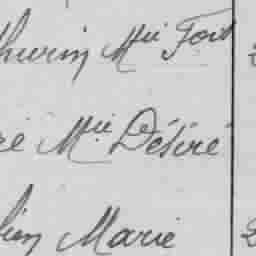 thurin Mie Fort
ré Mie Désiré
lien Marie